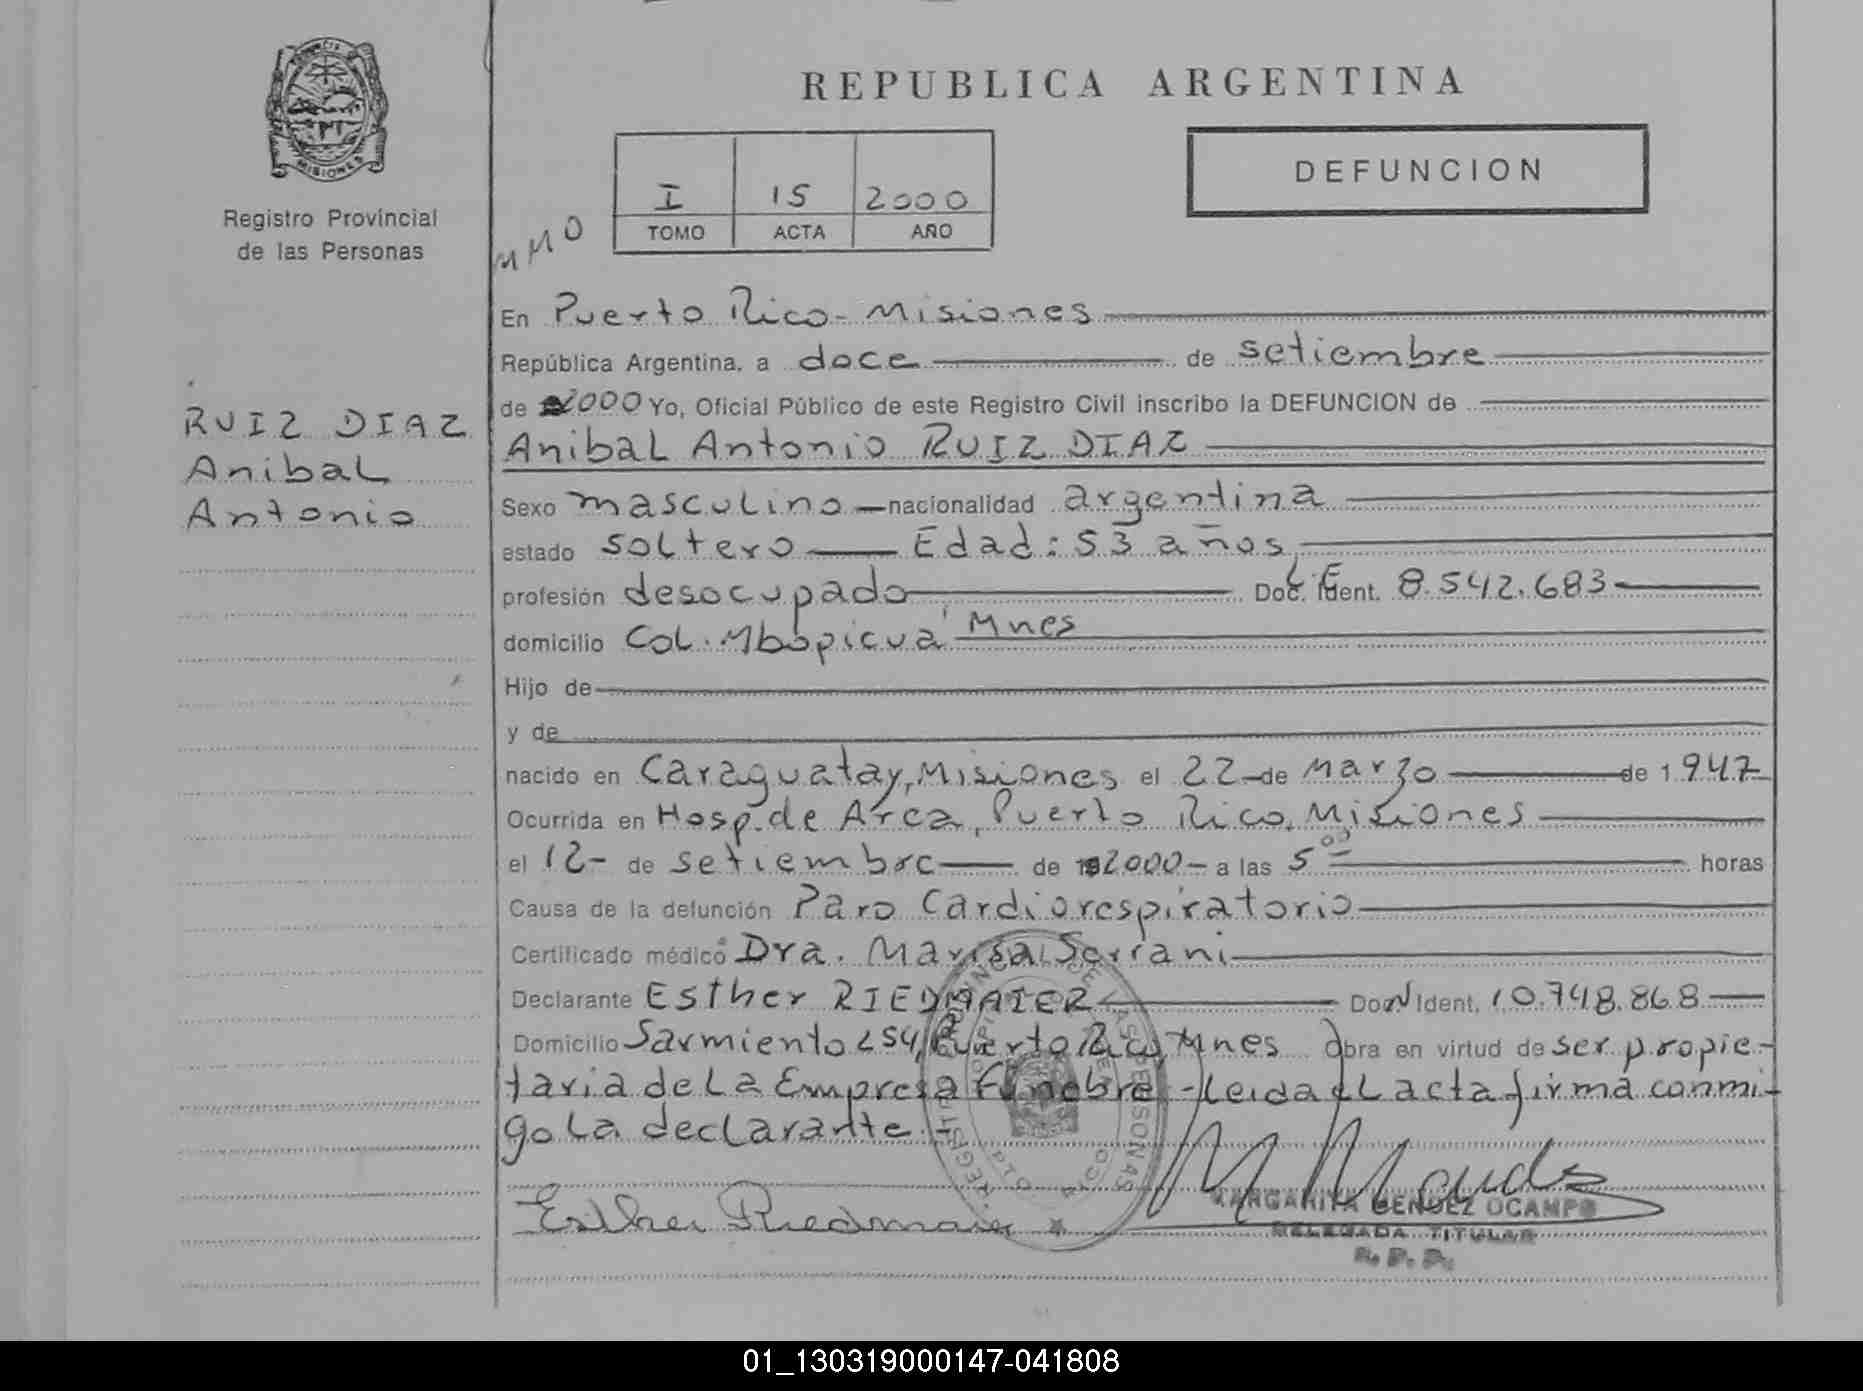 REPUBLICA ARGENTINA
MISIONES
Registro Provincial
de las Personas
I 15 2000
TOMO ACTA AÑO
DEFUNCION
MMO
RUIZ DIAZ
Anibal
Antonio
En Puerto Rico - Misiones
República Argentina, a doce de setiembre
de 2000 Yo, Oficial Público de este Registro Civil inscribo la DEFUNCION de
Anibal Antonio RUIZ DIAZ
Sexo masculino nacionalidad argentina
estado soltero Edad: 53 años
profesión desocupado Doc. Ident. L.E. 8.542.683
domicilio Col. Mbopicuá Mnes
Hijo de
y de
nacido en Caraguatay, Misiones el 22 de Marzo de 1947
Ocurrida en Hosp. de Area, Puerto Rico, Misiones
el 12 - de setiembre de 2000 - a las 5 00 horas
Causa de la defunción Paro Cardiorespiratorio
Certificado médico Dra. Marisa
Declarante Esther RIEDMAIER Doc. Ident. 10.748.868
Domicilio Sarmiento Puerto Rico, Mnes Obra en virtud de ser propie-
taria de La Empresa Funebre - Leida el acta firma conmi-
go La declarante
Esther Riedmaier
MARGARITA BENDEZ OCAMPO
DELEGADA TITULAR
R. P. P.
01_130319000147-041808